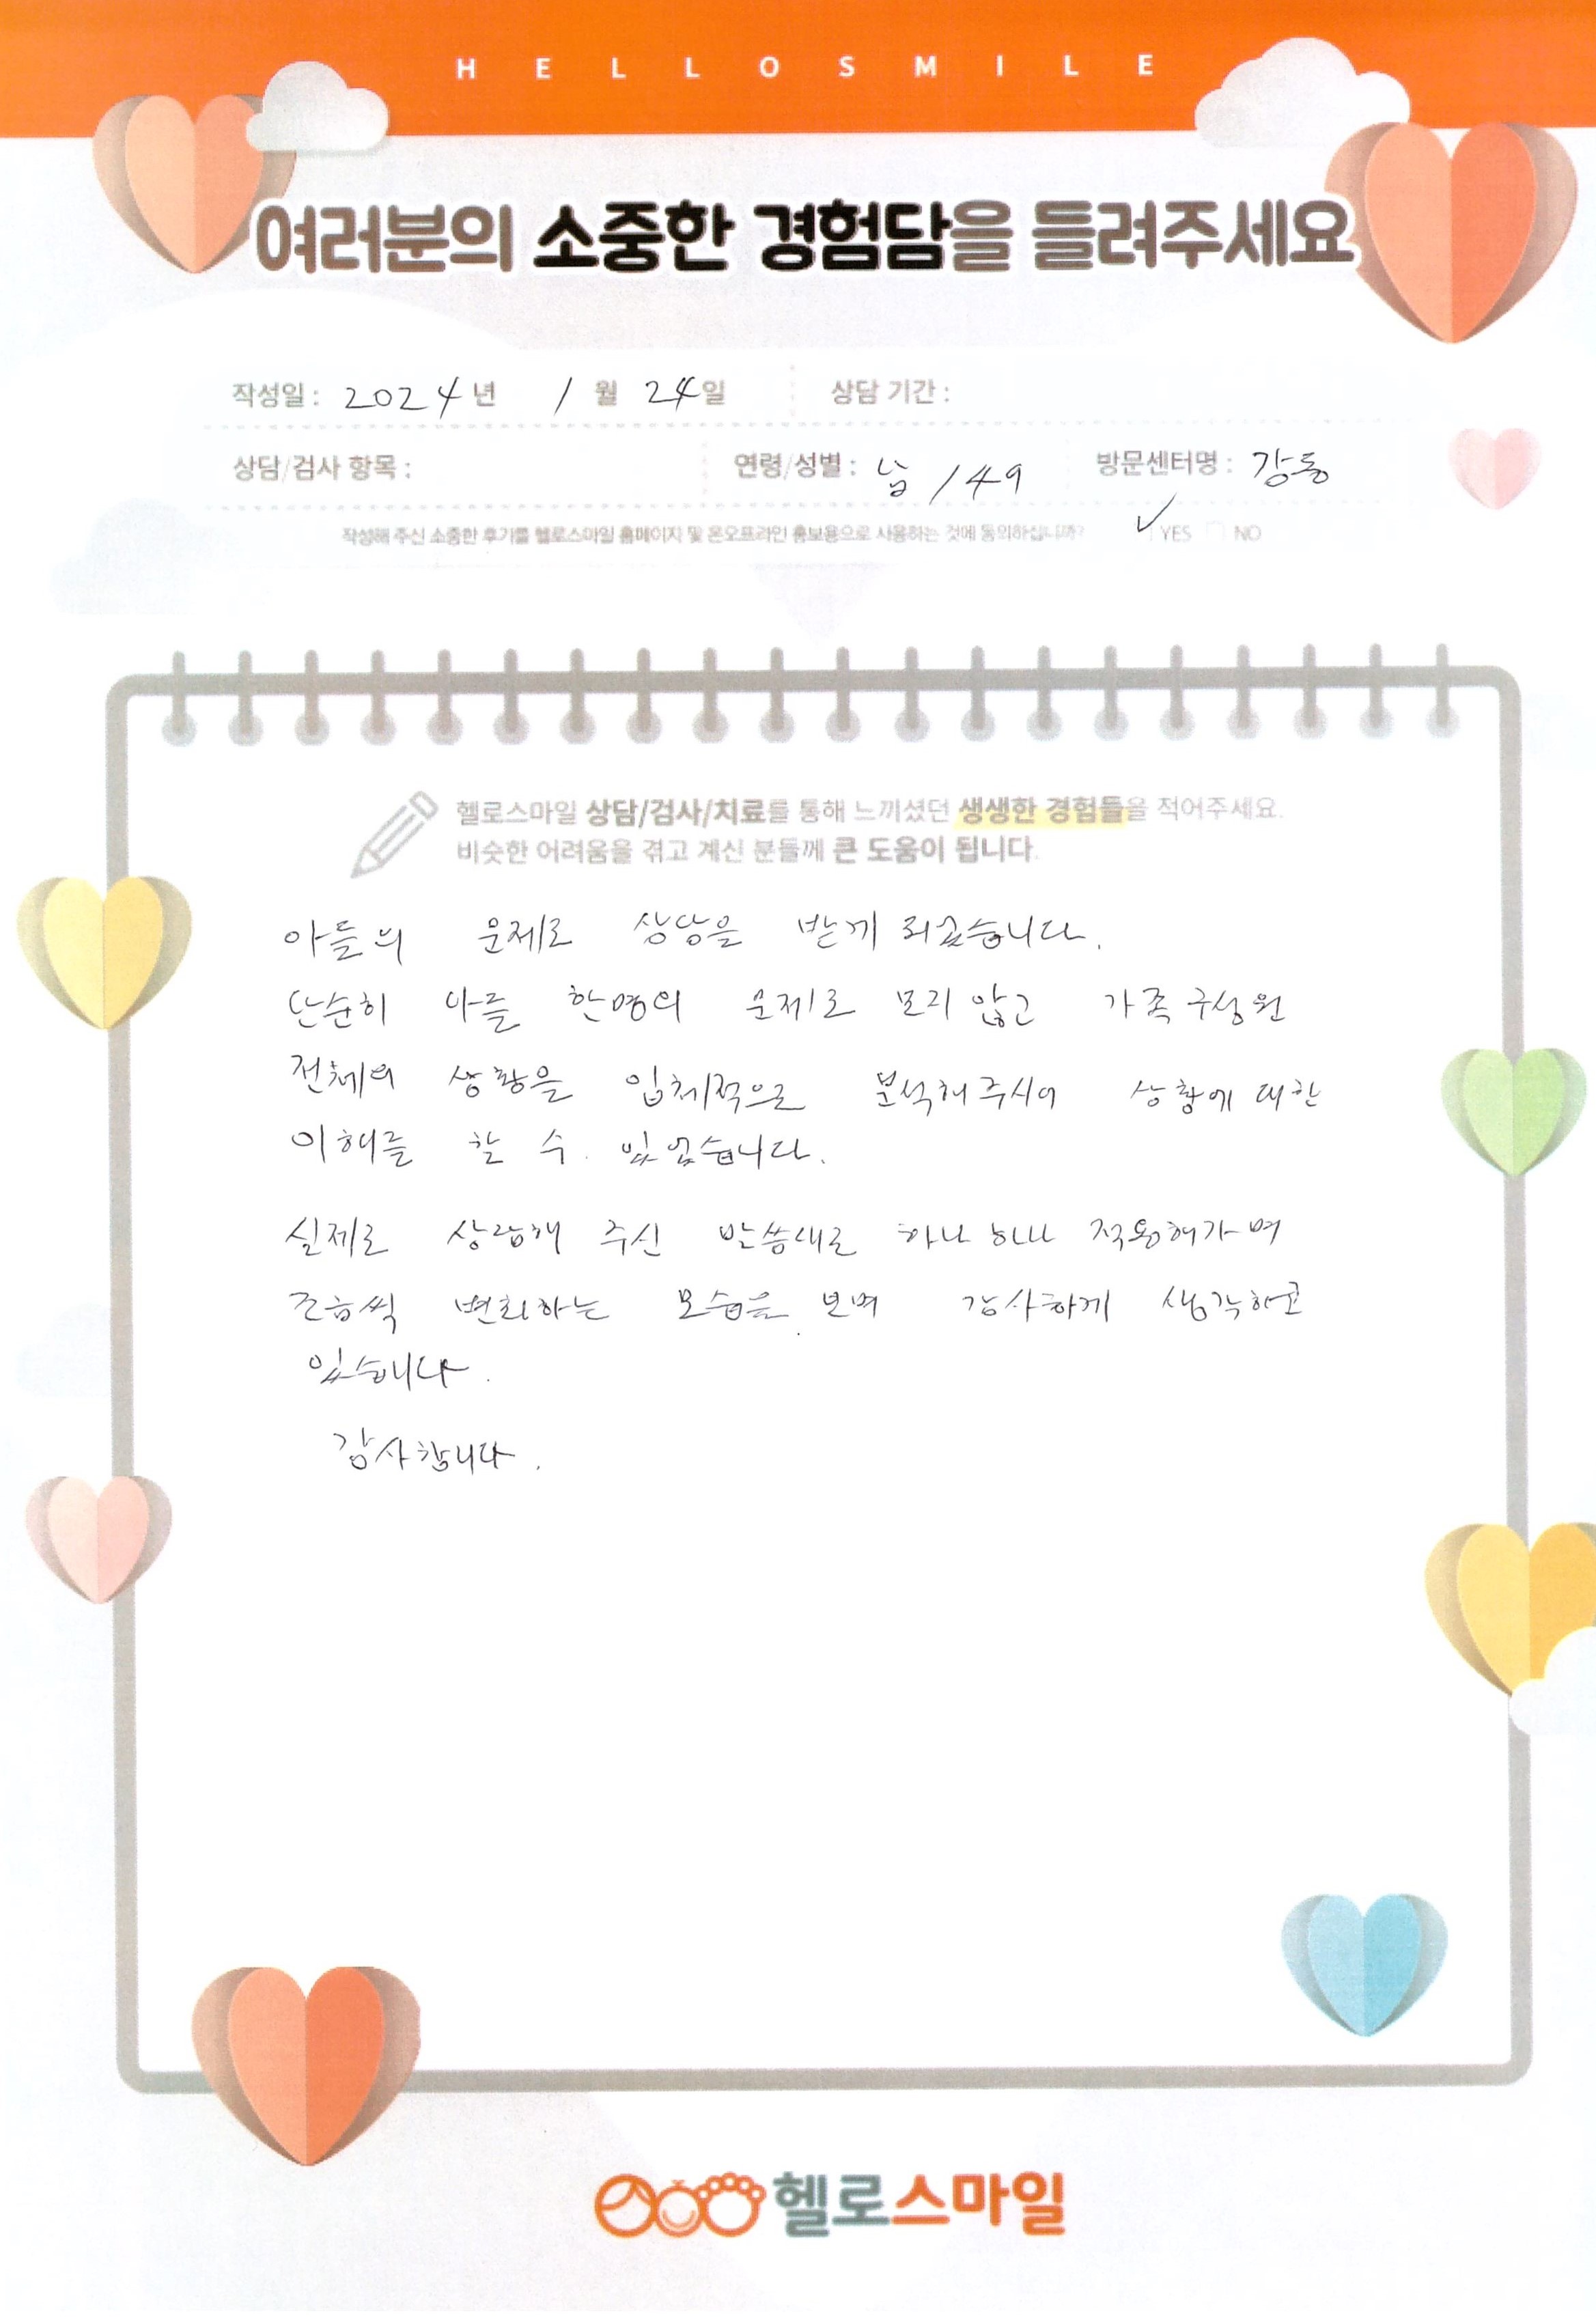 HELLOSMILE
여러분의 소중한 경험담을 들려주세요
작성일 : 2024년 1월 24일 상담 기간 :
상담/검사 항목 : 연령/성별 : 남 / 49 방문센터명 : 강동
작성해 주신 소중한 후기를 헬로스마일 홈페이지 및 온오프라인 홍보용으로 사용하는 것에 동의하십니까? ✓ YES NO
헬로스마일 상담/검사/치료를 통해 느끼셨던 생생한 경험들을 적어주세요.
비슷한 어려움을 겪고 계신 분들께 큰 도움이 됩니다.
아들의 문제로 상담을 받게 되었습니다.
단순히 아들 한명의 문제로 보지 않고 가족 구성원
전체의 상황을 입체적으로 분석해주시어 상황에 대한
이해를 할 수 있었습니다.
실제로 상담해 주신 말씀대로 하나 하나 적용해가며
조금씩 변화하는 모습을 보며 감사하게 생각하고
있습니다.
감사합니다.
헬로스마일